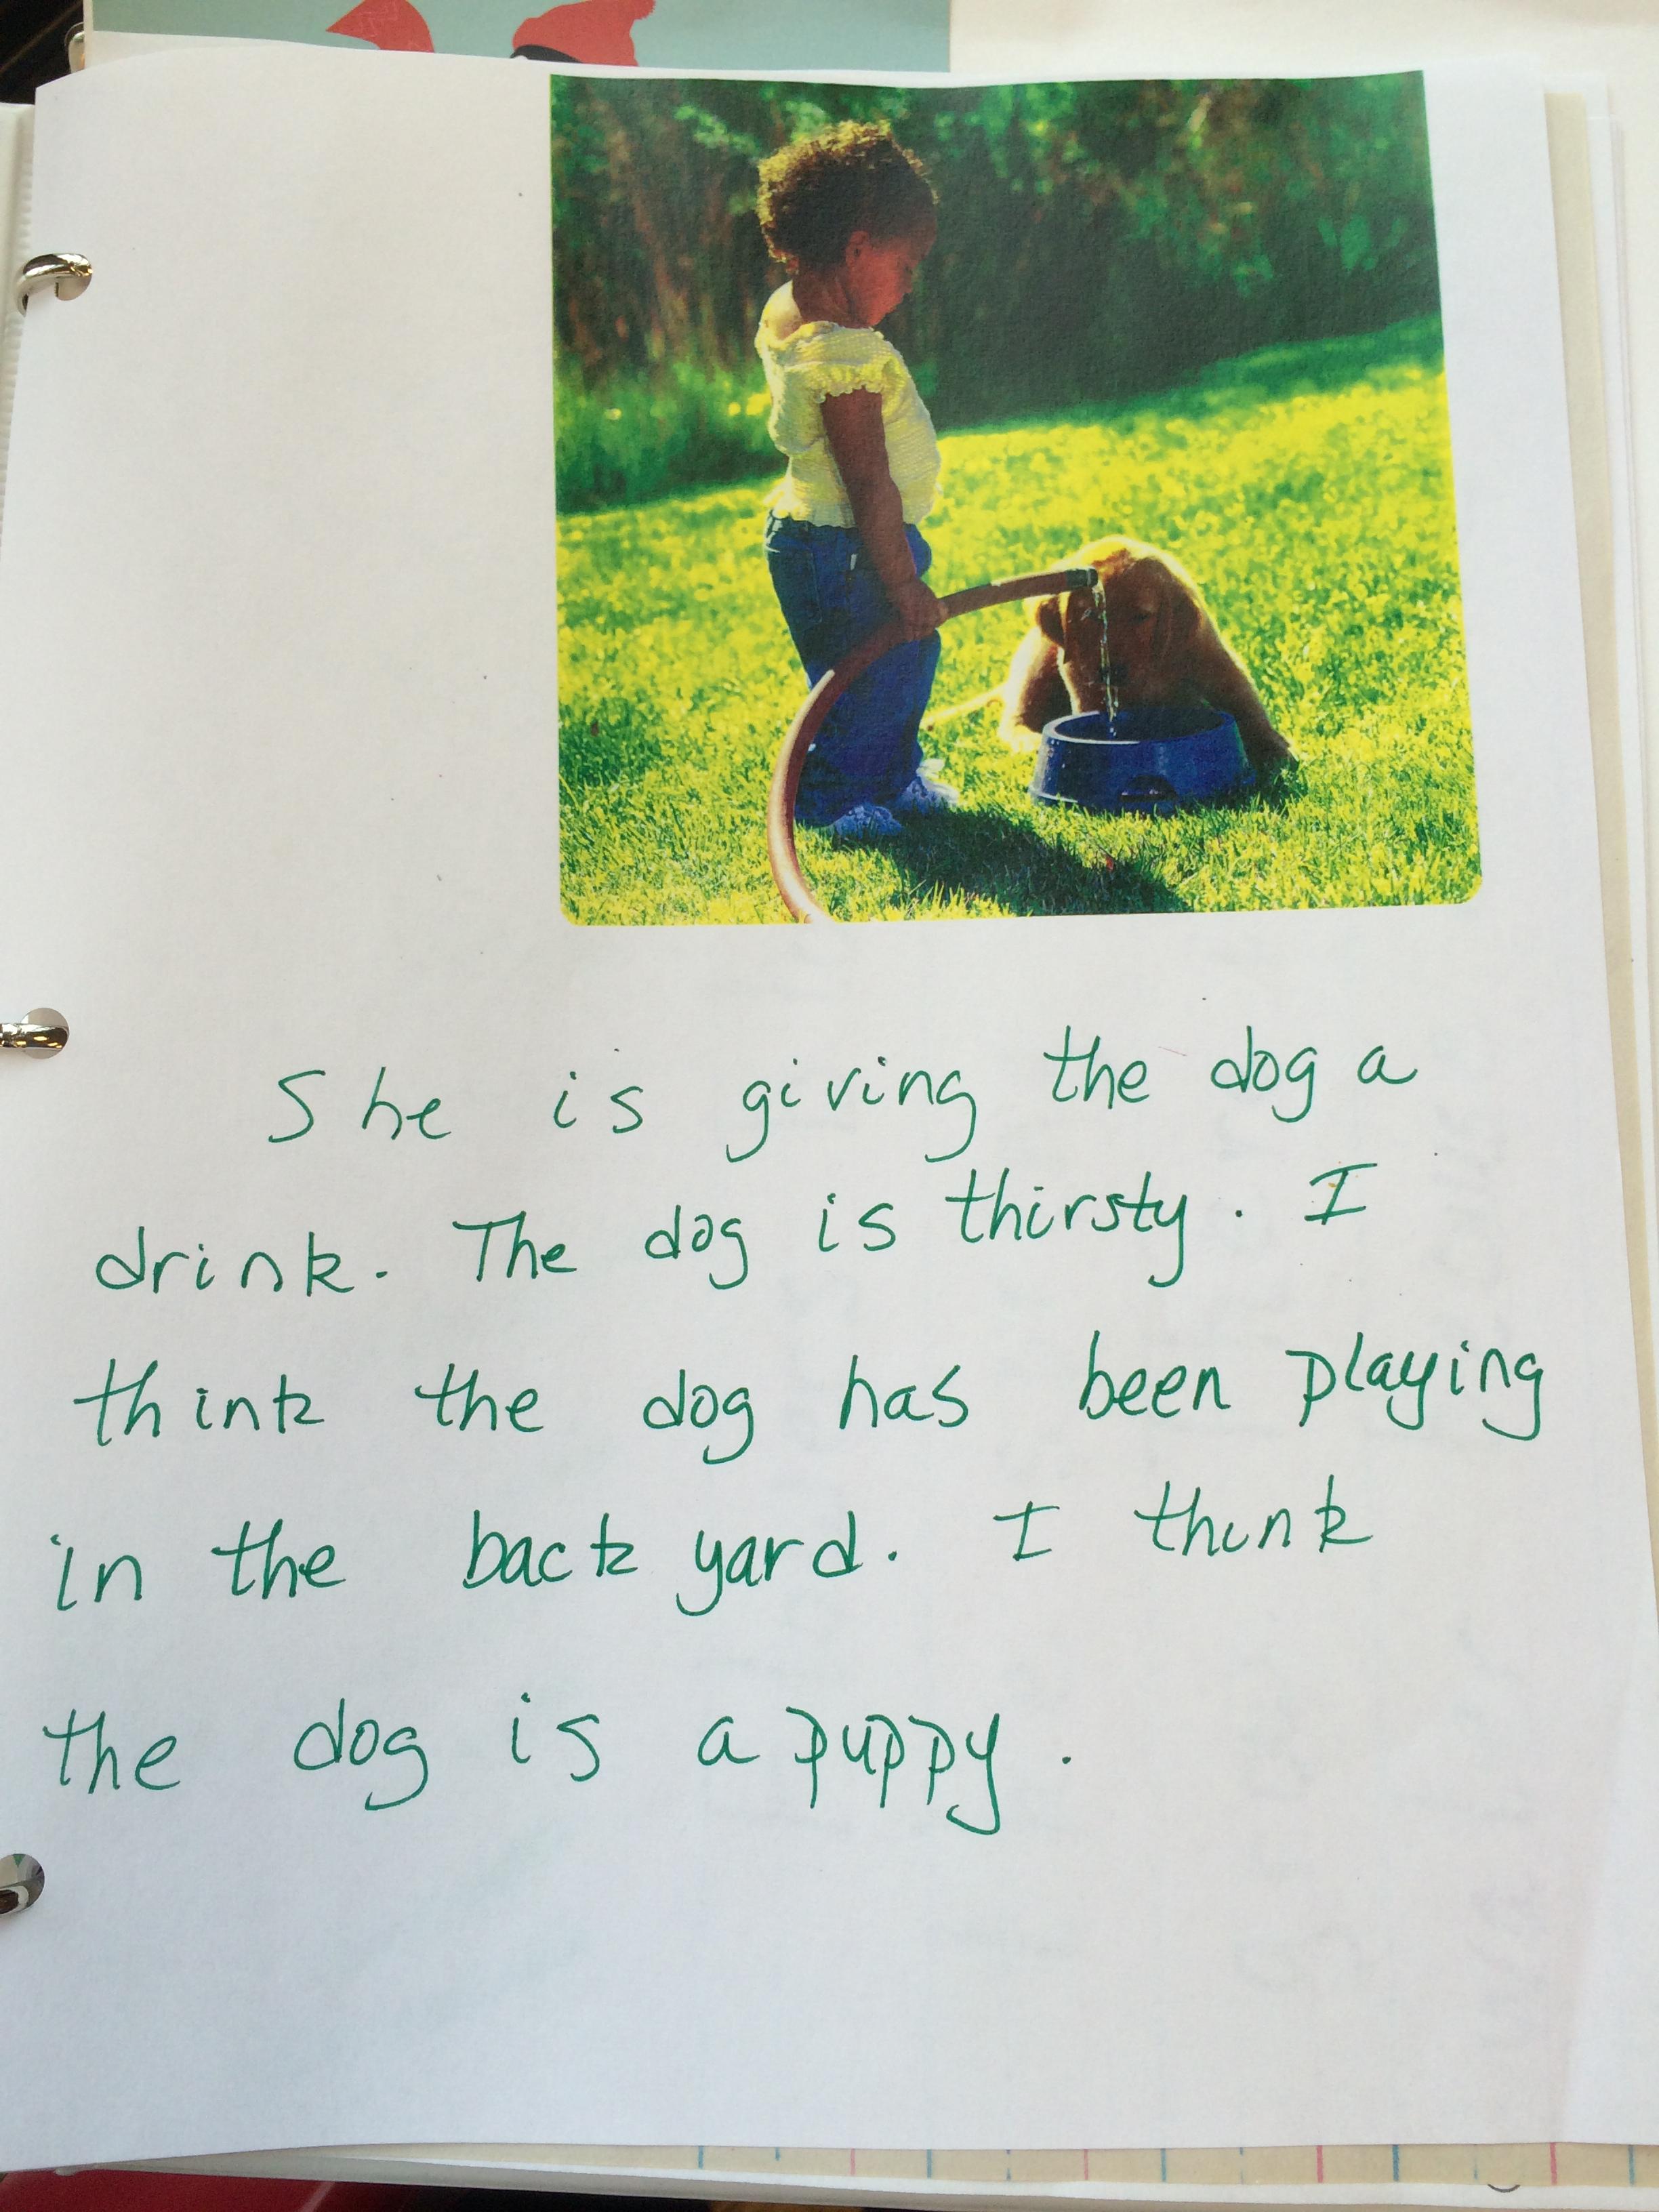 She is giving the dog a
drink. The dog is thirsty. I
think the dog has been playing
in the back yard. I think
the dog is a puppy.